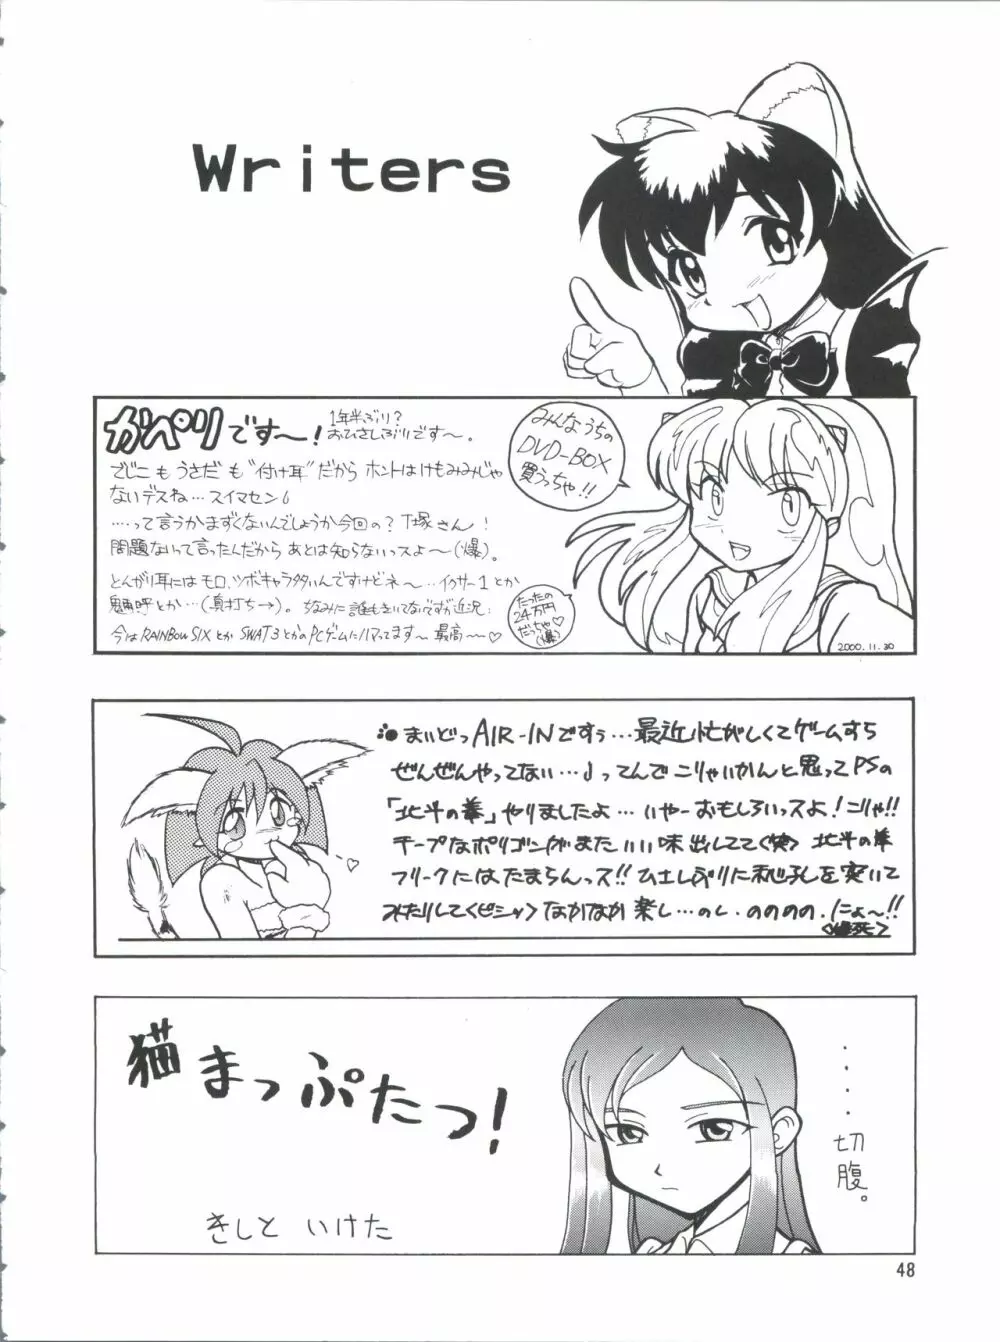 Writers
かぺりです〜！
1年半ぶり？
おひさしぶりです〜。
でじこもうさだも"付け耳"だからホントはけもみみじゃ
ないデスね…スイマセン
……って言うかまずくないんでしょうか今回の？T塚さん！
問題ないって言ったんだからあとは知らないっスよ〜(爆)。
とんがり耳にはモロ、ツボキャラ多いんですけどネ〜…イクサー1とか
魎呼とか…(真打ち→)。ちなみに誰もきいてないですが近況：
今はRAINBOW SIXとかSWAT3とかのPCゲームにハマってます〜最高〜♡
みんなうちの
DVD-BOX
買うっちゃ!!
たったの
24万円
だっちゃ♡
(爆)
2000.11.30
まいどっAIR-INですぅ…最近忙がしくてゲームすら
ぜんぜんやってない…♩ってんでこりゃいかんと思ってPSの
「北斗の拳」やりましたよ…いやーおもしろいっスよ！こりゃ!!
チープなポリゴンがまたいい味出してて<笑>北斗の拳
フリークにはたまらんっス!!ひさしぶりに秘孔を突いて
みたりしてくピシャ>なかなか楽し…のし・のののの.にょ〜!!
<爆死>
猫まっぷたつ！
きしと いけた
‥‥‥切腹。
48